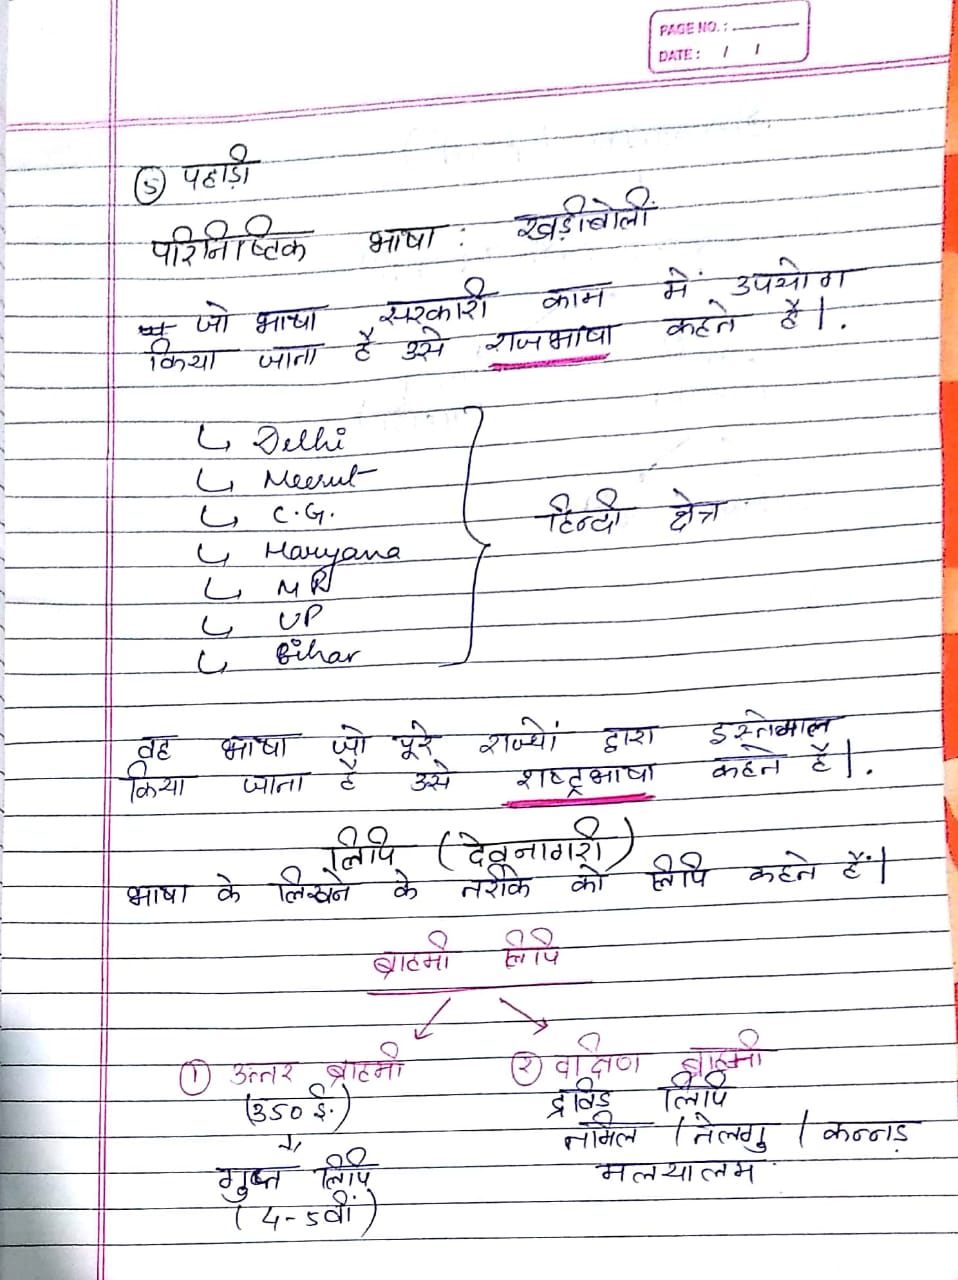 PAGE NO. :
DATE : / /
⑤ पहाड़ी
परिनिष्टिक भाषा : खड़ीबोली
जो भाषा सरकारी काम में उपयोग
किया जाता है उसे राजभाषा कहते हैं।.
↳ Delhi
↳ Meerut
↳ C.G.
↳ Haryana
↳ MP
↳ UP
↳ Bihar
हिन्दी क्षेत्र
वह भाषा जो पूरे राज्यों द्वारा इस्तेमाल
किया जाता है उसे राष्ट्रभाषा कहते हैं।.
लिपि (देवनागरी)
भाषा के लिखने के तरीके को लिपि कहते हैं।
ब्राह्मी लिपि
① उत्तर ब्राह्मी
(350 ई.)
गुप्त लिपि
(4-5वीं)
② दक्षिण ब्राह्मी
द्रविड लिपि
तामिल / तेलगु / कन्नड़
मलयालम